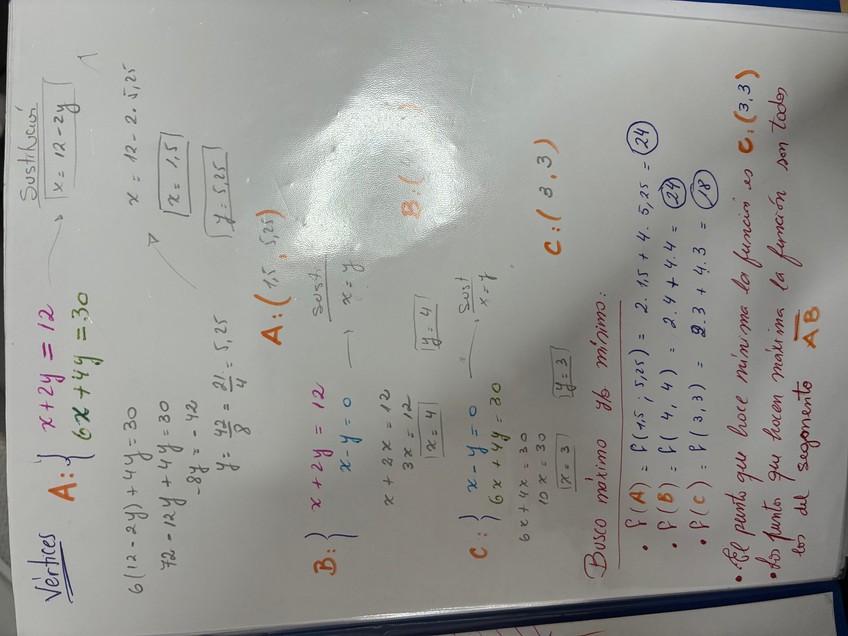 Vértices
A: { x+2y = 12
6x+4y = 30
Sustitución
x = 12-2y
6(12-2y)+4y=30
72-12y+4y=30
-8y=-42
y = 42/8 = 21/4 = 5,25
x = 12-2.5,25
x = 1,5
y = 5,25
A:(1,5 ; 5,25)
B: { x+2y = 12
x-y = 0
Sust.
x = y
x+2x = 12
3x = 12
x = 4
y = 4
B:(
C: { x-y = 0
6x+4y = 30
Sust
x=y
6x+4x=30
10x = 30
x = 3
y = 3
C:(3,3)
Busco máximo y/o mínimo:
• f(A) = f(1,5 ; 5,25) = 2.1,5 + 4.5,25 = 24
• f(B) = f(4,4) = 2.4 + 4.4 = 24
• f(C) = f(3,3) = 2.3 + 4.3 = 18
• El punto que hace mínima la función es C:(3,3)
• Los puntos que hacen máxima la función son todos
los del segmento AB